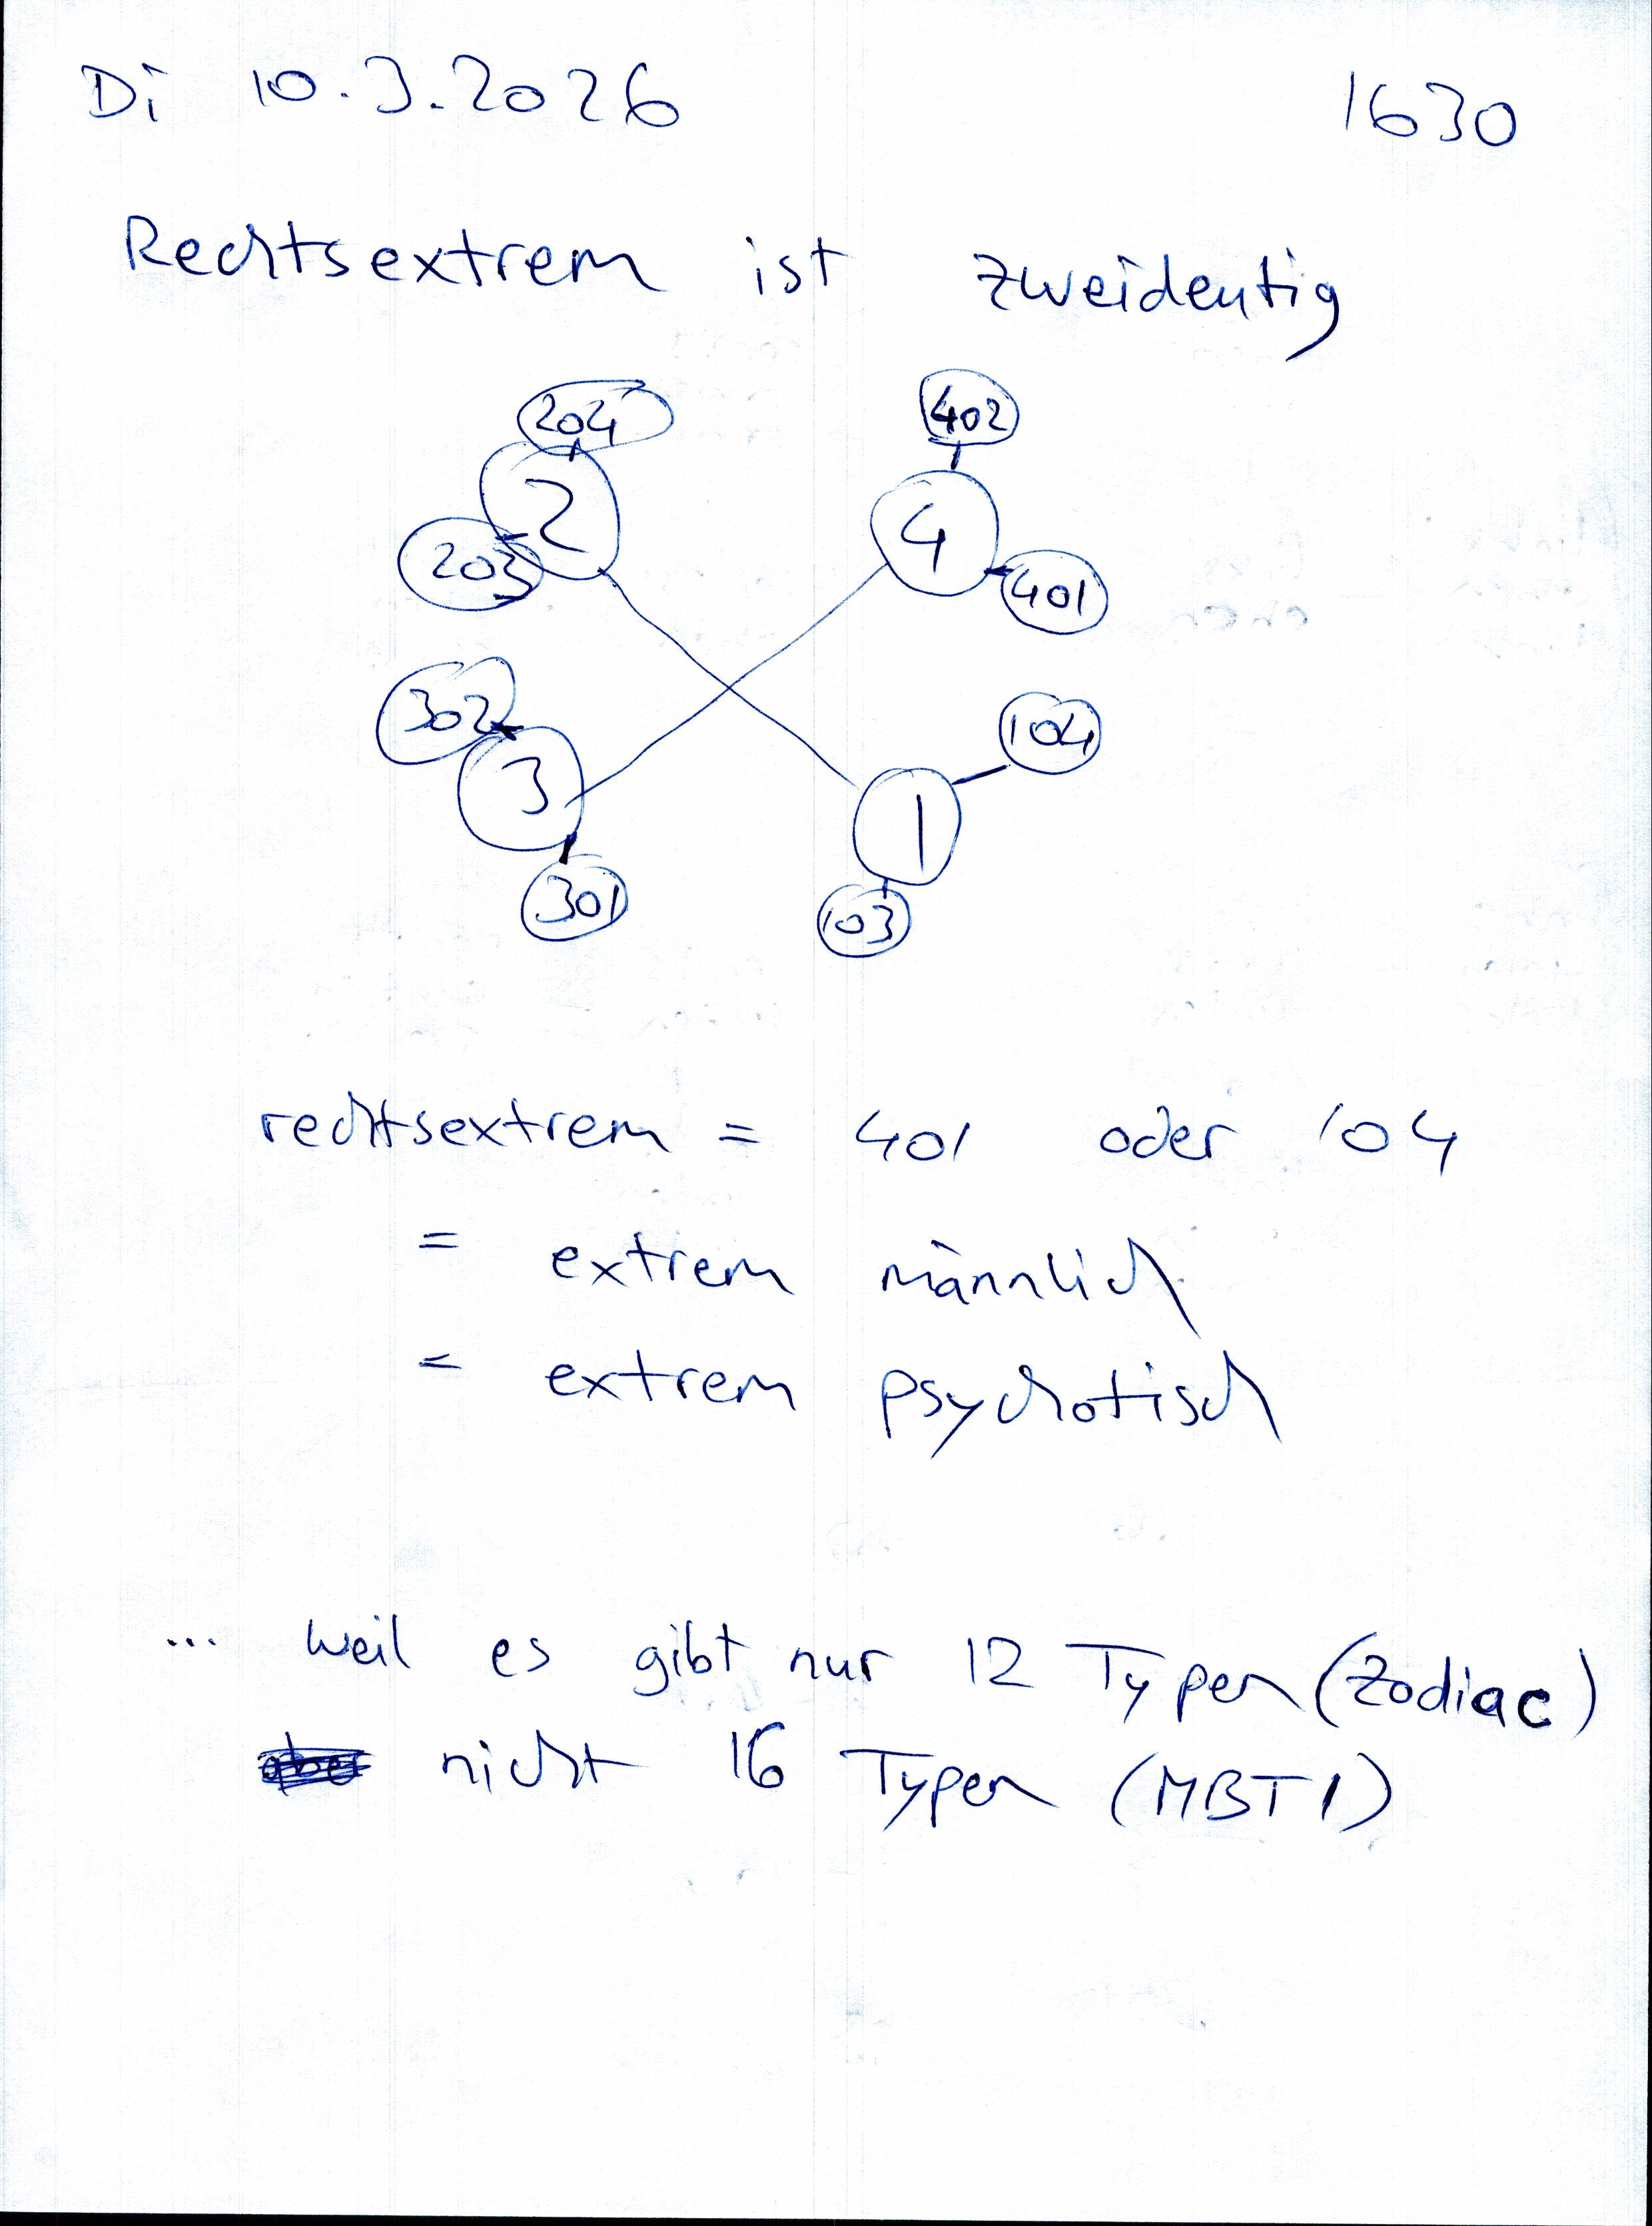 Di 10.3.2026 1630
Rechtsextrem ist zweideutig
204 402
2 4
203 401
302 104
3 1
301 103
rechtsextrem = 401 oder 104
= extrem männlich
= extrem psychotisch
... weil es gibt nur 12 Typen (Zodiac)
nicht 16 Typen (MBTI)